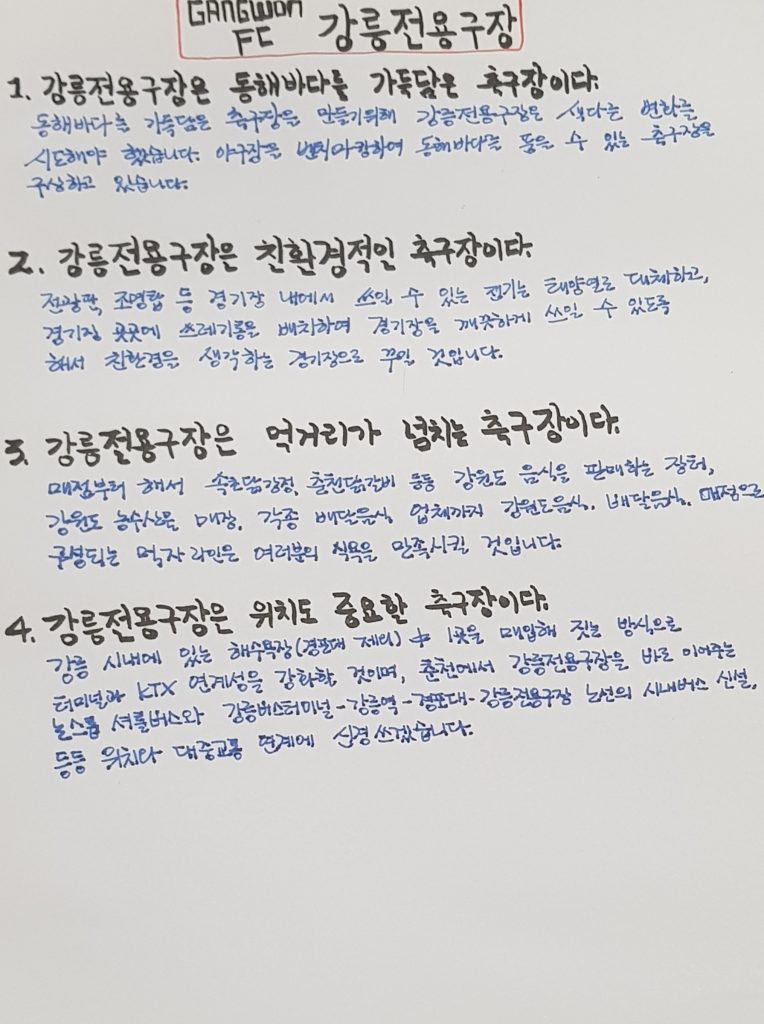 GANGWON
FC 강릉전용구장
1. 강릉전용구장은 동해바다를 가득담은 축구장이다.
동해바다를 가득담은 축구장을 만들기위해 강릉전용구장은 색다른 변화를
시도해야 했습니다. 야구장을 벤치마킹하여 동해바다를 품을 수 있는 축구장을
구상하고 있습니다.
2. 강릉전용구장은 친환경적인 축구장이다.
전광판, 조명탑 등 경기장 내에서 쓰일 수 있는 전기는 태양열로 대체하고,
경기장 곳곳에 쓰레기통을 배치하여 경기장을 깨끗하게 쓰일 수 있도록
해서 친환경을 생각하는 경기장으로 꾸밀 것입니다.
3. 강릉전용구장은 먹거리가 넘치는 축구장이다.
매점부터 해서 속초닭강정, 춘천닭갈비 등등 강원도 음식을 판매하는 장터,
강원도 농수산물 매장, 각종 배달음식 업체까지 강원도음식, 배달음식, 매점으로
구성되는 먹자라인은 여러분의 식욕을 만족시킬 것입니다.
4. 강릉전용구장은 위치도 중요할 축구장이다.
강릉 시내에 있는 해수욕장(경포대 제외) 中 1곳을 매입해 짓는 방식으로
터미널과 KTX 연계성을 강화할 것이며, 춘천에서 강릉전용구장을 바로 이어주는
논스톱 셔틀버스와 강릉버스터미널-강릉역-경포대-강릉전용구장 노선의 시내버스 신설,
등등 위치와 대중교통 연계에 신경 쓰겠습니다.